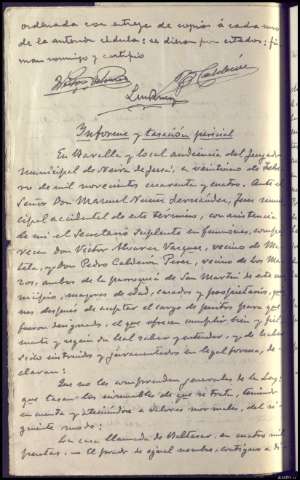 ordenada con entrega de copia á cada uno
de la anterior cédula: se dieron por citados; fir-
man conmigo y certifico
Informe y tasación pericial
En Baralla y local audiencia del Juzgado
municipal de Neira de Jusá, a veintiuno de Febre-
ro de mil novecientos cuarenta y cuatro. Ante el
Señor Don Manuel Nuñez Fernández, Juez muni-
cipal accidental de este término, con asistencia
de mi el Secretario Suplente en funciones, compa-
recen Don Victor Alvarez Vazquez, vecino de
y Don Pedro Calderón Perez, vecino de los Ma-
zos, ambos de la parroquia de San Martin de este mu-
nicipio, mayores de edad, casados y propietarios, quie-
nes después de aceptar el cargo de peritos para que
fueron designados, el que ofrecen cumplir bien y fiel-
mente y según su leal saber y entender, y de haber
sido instruidos y juramentados en legal forma, de-
claran:
Que no les comprenden generales de la Ley;
que tasan los inmuebles de que se trata, teniendo
en cuenta y ateniéndose a valores normales, del si-
guiente modo:
La casa llamada de Baltasar, en cuatro mil
pesetas. = El prado de igual nombre, contiguo a di-